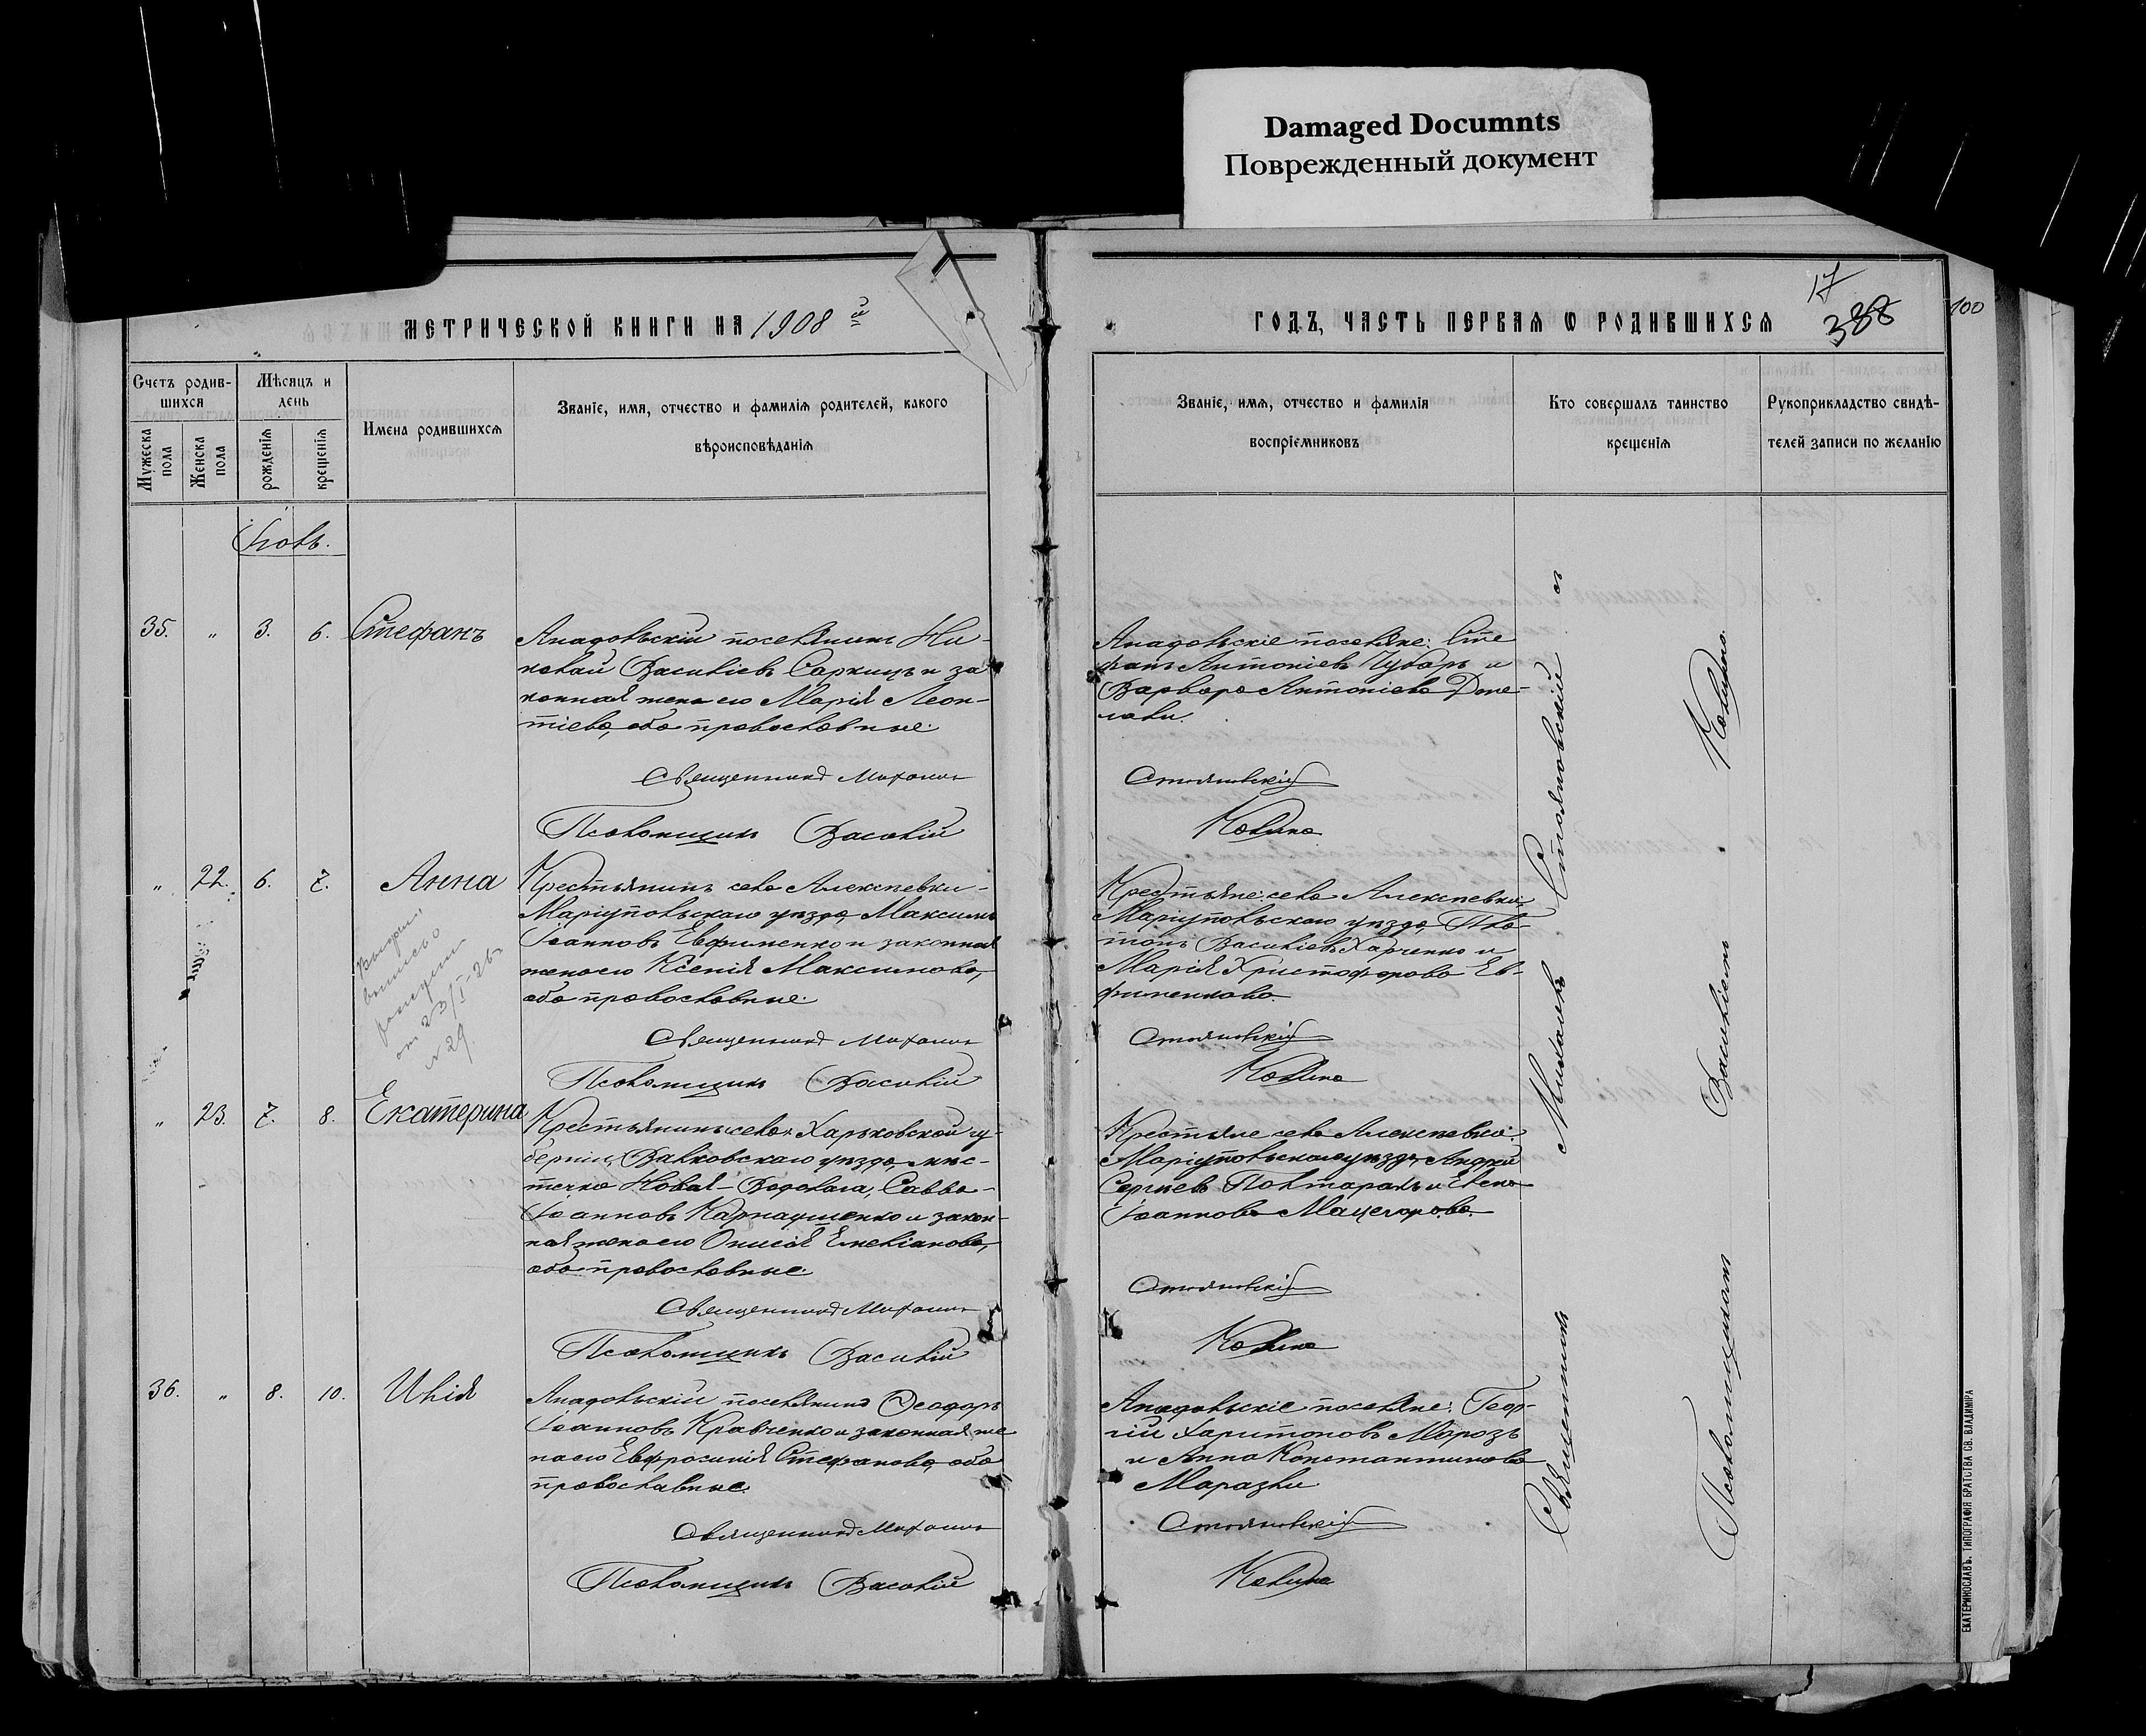 Damaged Documnts
Поврежденный документ
МЕТРИЧЕСКОЙ КНИГИ НА 1908 й
ГОДЪ, ЧАСТЬ ПЕРВАЯ Ѡ РОДИВШИХСЯ
17
388
100
Счетъ родив-
шихся
Мужеска пола
Женска пола
Мѣсяцъ и
день
рожденія
крещенія
Имена родившихся
Званіе, имя, отчество и фамилія родителей, какого
вѣроисповѣданія
Званіе, имя, отчество и фамилія
воспріемниковъ
Кто совершалъ таинство
крещенія
Рукоприкладство свидѣ-
телей записи по желанію
35. " 3. 6. Стефанъ
Анадольскій поселянинъ Ни-
колай Василіевъ Саркицъ и за
конная жена его Марія Леон-
тіева, оба православные.
Священникъ Михаилъ
Псаломщикъ Василій
Анадольскіе поселяне: Сте
фанъ Антоніевъ Чубаръ и
Варвара Антоніева
Стояновскій
Калина
" 22. 6. 7. Анна
Крестьянинъ села Алексѣевки
Маріупольскаго уѣзда, Максимъ
Іоанновъ Евфименко и законная
жена его Ксенія Максимова,
оба православные.
Священникъ Михаилъ
Псаломщикъ Василій
от 23/I-26
№ 29.
Крестьяне села Алексѣевки,
Маріупольскаго уѣзда, Пла-
тонъ Василіевъ Харченко и
Марія Христофорова Ев-
фименкова
Стояновскій
Калина
" 23. 7. 8. Екатерина
Крестьянинъ села Харьковской гу-
берніи, Валковскаго уѣзда, мѣс-
течка Новая-Водолага, Савва
Іоанновъ Карнаушенко и закон-
ная жена его Онисія Емеліанова,
оба православные.
Священникъ Михаилъ
Псаломщикъ Василій
Крестьяне села Алексѣевки,
Маріупольскаго уѣзда, Андрей
Сергіевъ Полтаракъ и Елена
Іоаннова Мацегорова.
Стояновскій
Калина
36. " 8. 10. Илія
Анадольскій поселянинъ Ѳеодоръ
Іоанновъ Кравченко и законная же
на его Евфросинія Стефанова, оба
православные.
Священникъ Михаилъ
Псаломщикъ Василій
Анадольскіе поселяне: Геор-
гій Харитоновъ Морозъ
и Анна Константинова
Маразли
Стояновскій
Калина
Священникъ Михаилъ Стояновскій съ
Псаломщикомъ Василіемъ Калиною.
ЕКАТЕРИНОСЛАВЪ. ТИПОГРАФІЯ БРАТСТВА СВ. ВЛАДИМІРА